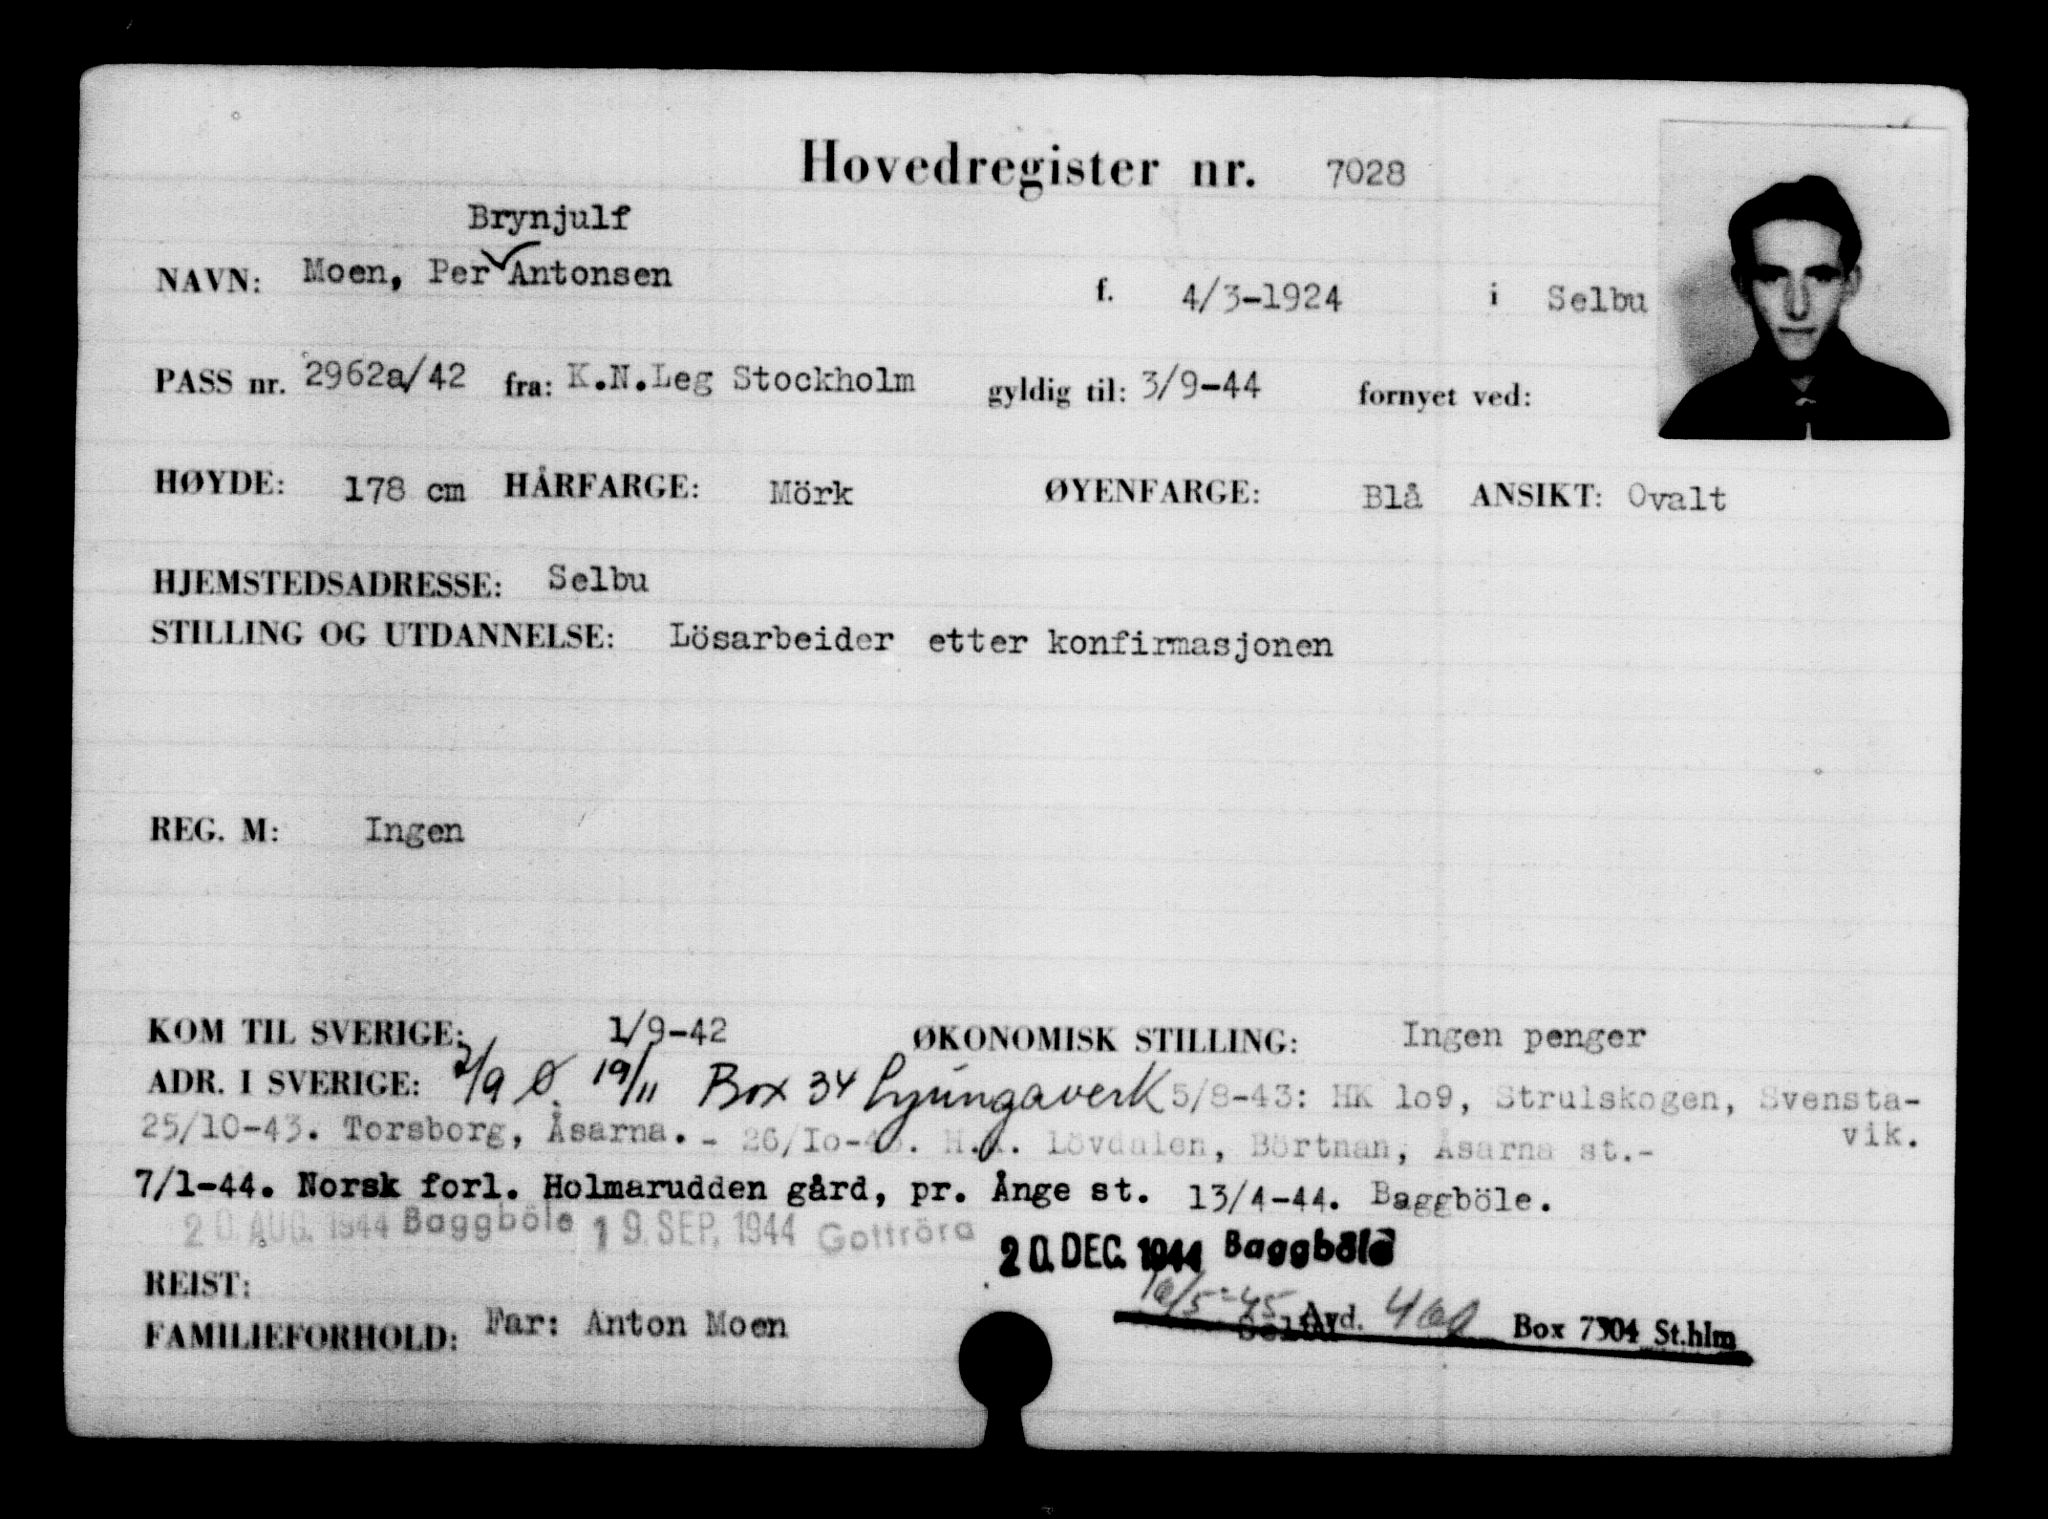 Hovedregister nr. 7028
Brynjulf
NAVN: Moen, Per Antonsen f. 4/3-1924 i Selbu
PASS nr. 2962a/42 fra: K.N.Leg Stockholm gyldig til: 3/9-44 fornyet ved:
HØYDE: 178 cm HÅRFARGE: Mörk ØYENFARGE: Blå ANSIKT: Ovalt
HJEMSTEDSADRESSE: Selbu
STILLING OG UTDANNELSE: Lösarbeider etter konfirmasjonen
REG. M: Ingen
KOM TIL SVERIGE: 1/9-42 ØKONOMISK STILLING: Ingen penger
ADR. I SVERIGE: 2/9 Ø. 19/11 Box 34 Ljungaverk 5/8-43: HK 1o9, Strulskogen, Svensta-
vik.
25/10-43. Torsborg, Åsarna. - 26/Io-43. Lövdalen, Börtnan, Åsarna st.-
7/1-44. Norsk forl. Holmarudden gård, pr. Ånge st. 13/4-44. Baggböle.
20. AUG. 1944 Baggböle 19. SEP. 1944 Gottröra 20. DEC. 1944 Baggböle
REIST: 10/5-45
FAMILIEFORHOLD: Far: Anton Moen Selbu Avd. Box 7304 St.hlm